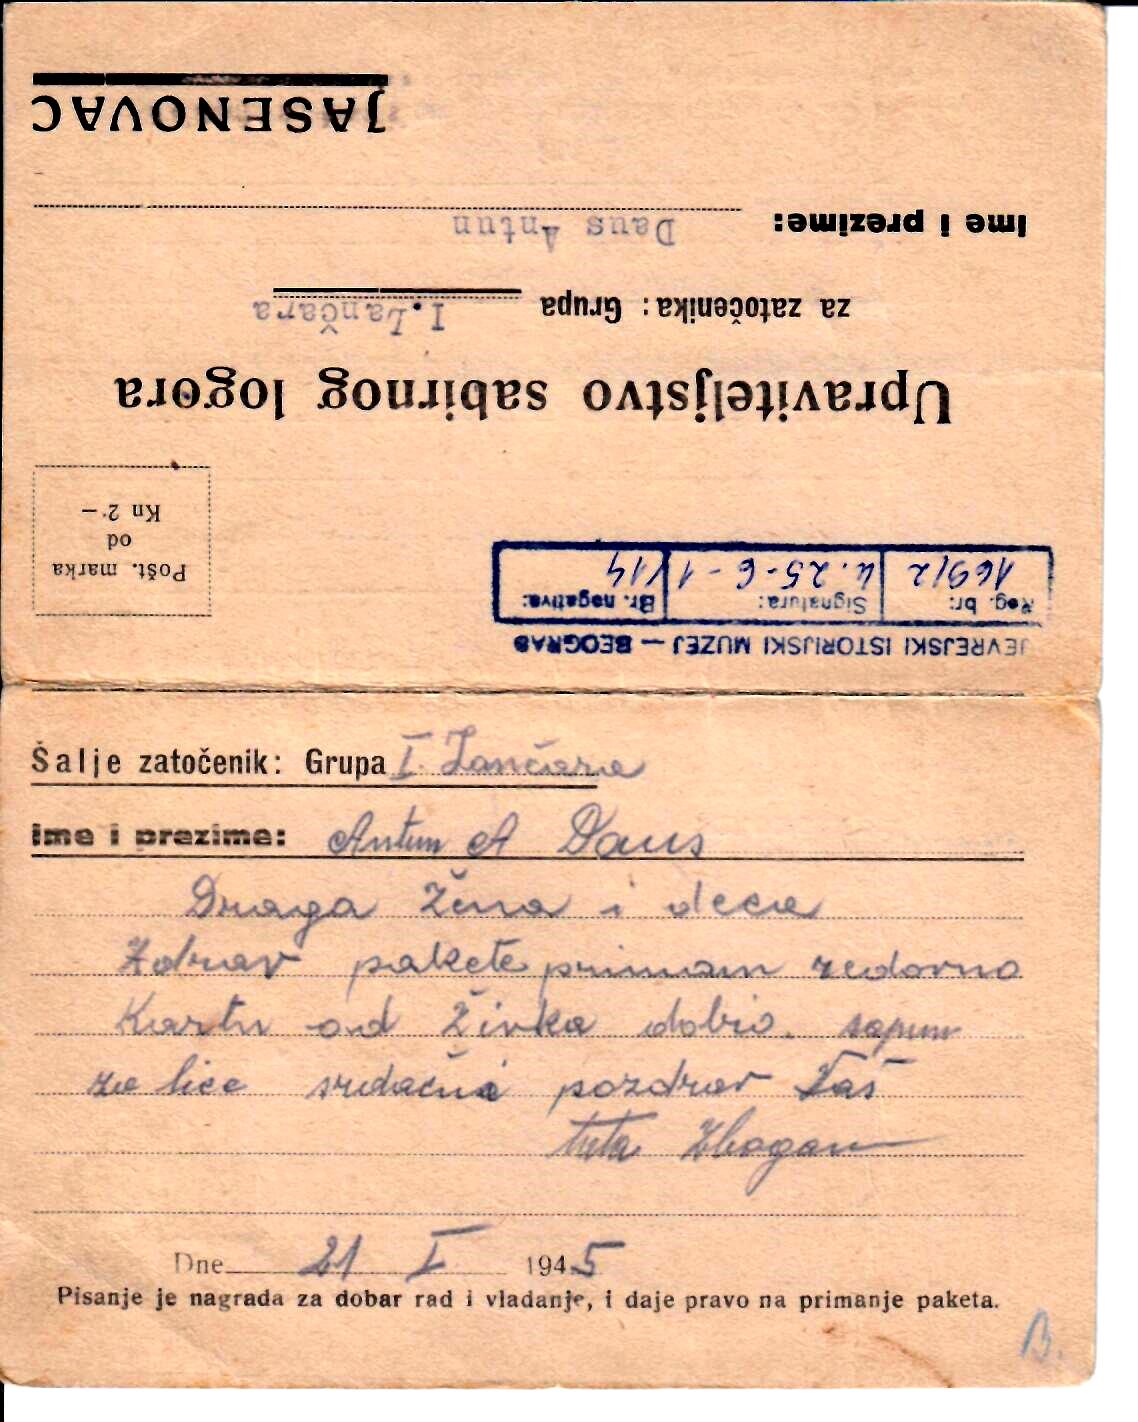 JASENOVAC
Ime i prezime: Daus Antun
za zatočenika: Grupa I. Lančara
Upraviteljstvo sabirnog logora
Pošt. marka
od
Kn 2·—
JEVREJSKI ISTORIJSKI MUZEJ — BEOGRAD
Reg. br: Signatura: Br. negativa:
169/2 k. 25-6-1/14
Šalje zatočenik: Grupa I. Lančara
ime i prezime: Antun A Daus
Draga Žena i deca
Zdrav pakete primam redovno
Kartu od Živka dobio. sapun
za lice srdačni pozdrav Vaš
tata Zbogam
Dne 21 I 1945
Pisanje je nagrada za dobar rad i vladanje, i daje pravo na primanje paketa.
B.